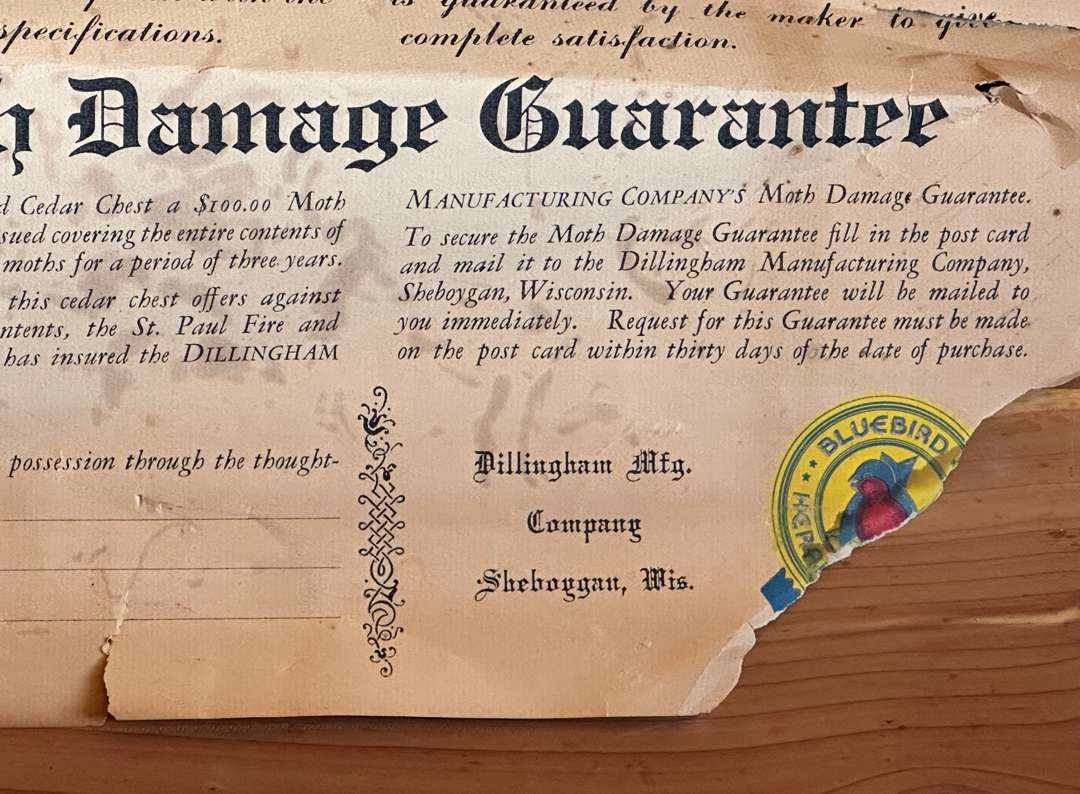 specifications.
is guaranteed by the maker to give
complete satisfaction.
Damage Guarantee
Cedar Chest a $100.00 Moth
sued covering the entire contents of
moths for a period of three years.
this cedar chest offers against
ntents, the St. Paul Fire and
has insured the DILLINGHAM
possession through the thought-
MANUFACTURING COMPANY'S Moth Damage Guarantee.
To secure the Moth Damage Guarantee fill in the post card
and mail it to the Dillingham Manufacturing Company,
Sheboygan, Wisconsin. Your Guarantee will be mailed to
you immediately. Request for this Guarantee must be made
on the post card within thirty days of the date of purchase.
Dillingham Mfg.
Company
Sheboygan, Wis.
BLUEBIRD